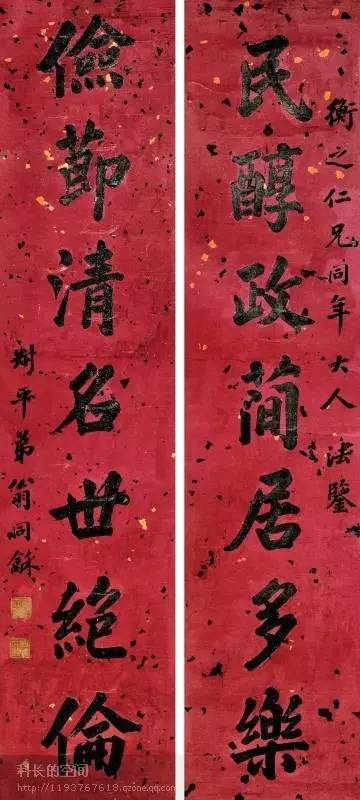 衡之仁兄同年大人法鑒
民醇政簡居多樂
儉節清名世絕倫
叔平弟翁同龢
科长的空间
http://1193767618.qzone.qq.com